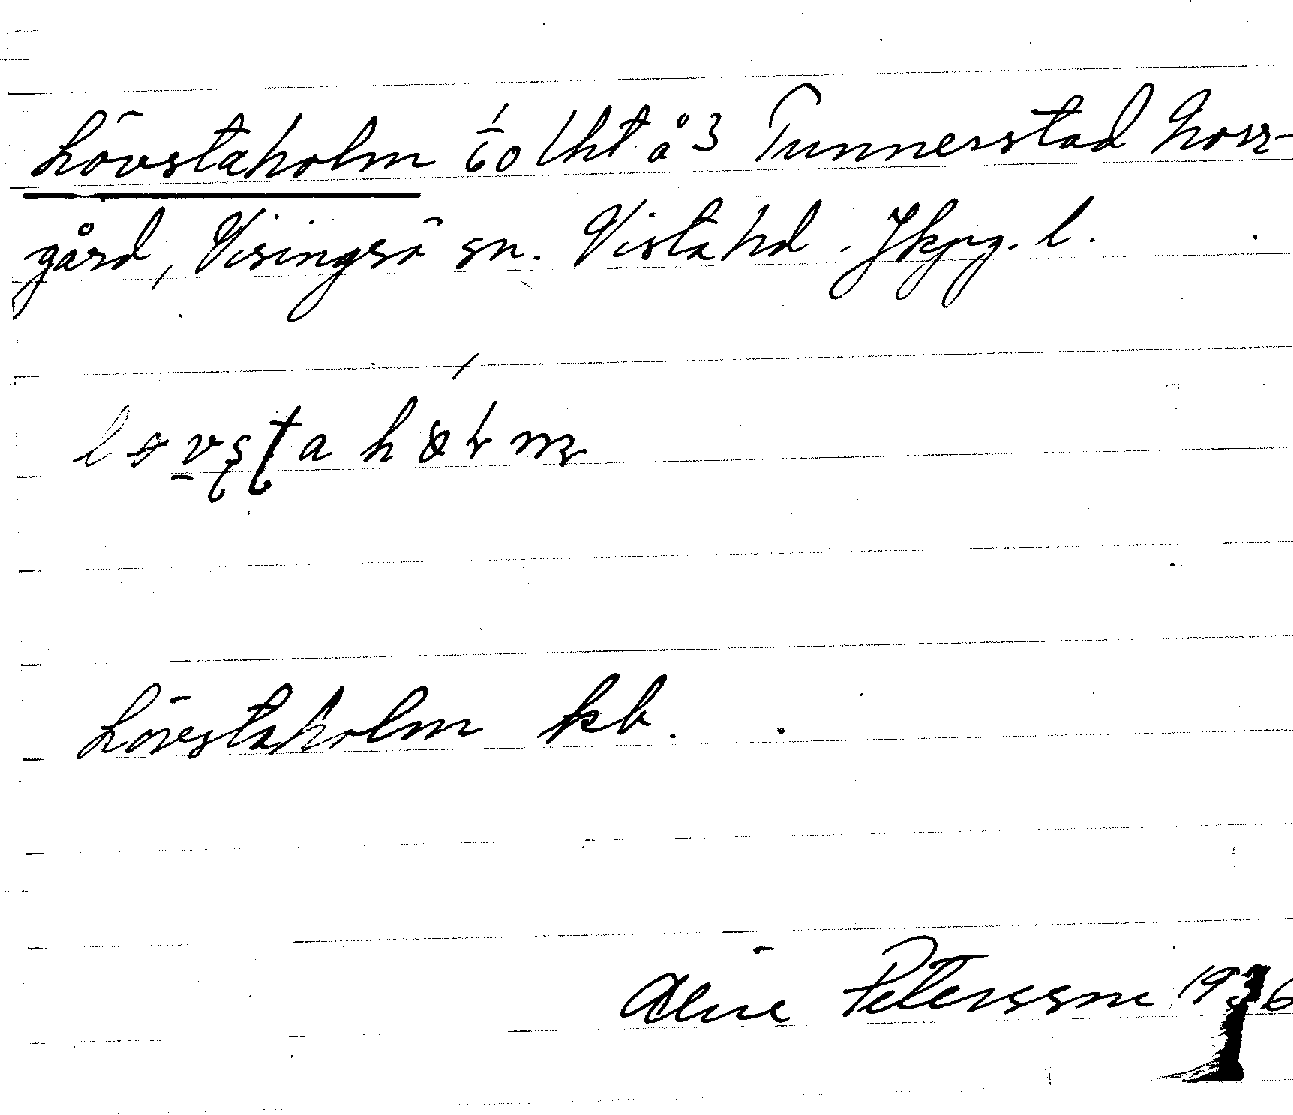 Lövstaholm 1/60 lht å 3 Tunnerstad Norr-
gård, Visingsö sn. Vista hd. Jkpg. l.
Lövstaholm kb.
Petersson 1936